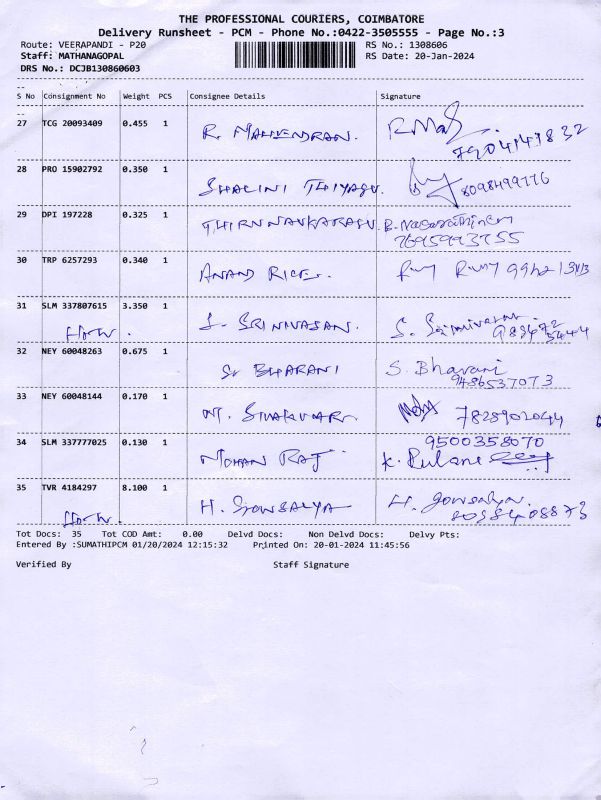 THE PROFESSIONAL COURIERS, COIMBATORE
Delivery Runsheet - PCM - Phone No.:0422-3505555 - Page No.:3
Route: VEERAPANDI - P20 RS No.: 1308606
Staff: MATHANAGOPAL RS Date: 20-Jan-2024
DRS No.: DCJB130860603
S No Consignment No Weight PCS Consignee Details Signature
27 TCG 20093409 0.455 1 R. MAHENDRAN.
28 PRO 15902792 0.350 1 SHALINI THIYAGU 8098499776
29 DPI 197228 0.325 1 THIRUNAVKARASU. B. Nagarathinam
7695993755
30 TRP 6257293 0.340 1 ANAND
31 SLM 337807615 3.350 1 S. SRINIVASAN. S. Srinivasan
32 NEY 60048263 0.675 1 S. BHARANI S. Bharani
9486537073
33 NEY 60048144 0.170 1 M. SIVAKUMAR. 7828902044
34 SLM 337777025 0.130 1 MOHAN RAJ 9500358070
K.
35 TVR 4184297 8.100 1 H. GOWSALYA H. Gowsalya.
Tot Docs: 35 Tot COD Amt: 0.00 Delvd Docs: Non Delvd Docs: Delvy Pts:
Entered By :SUMATHIPCM 01/20/2024 12:15:32 Printed On: 20-01-2024 11:45:56
Verified By Staff Signature